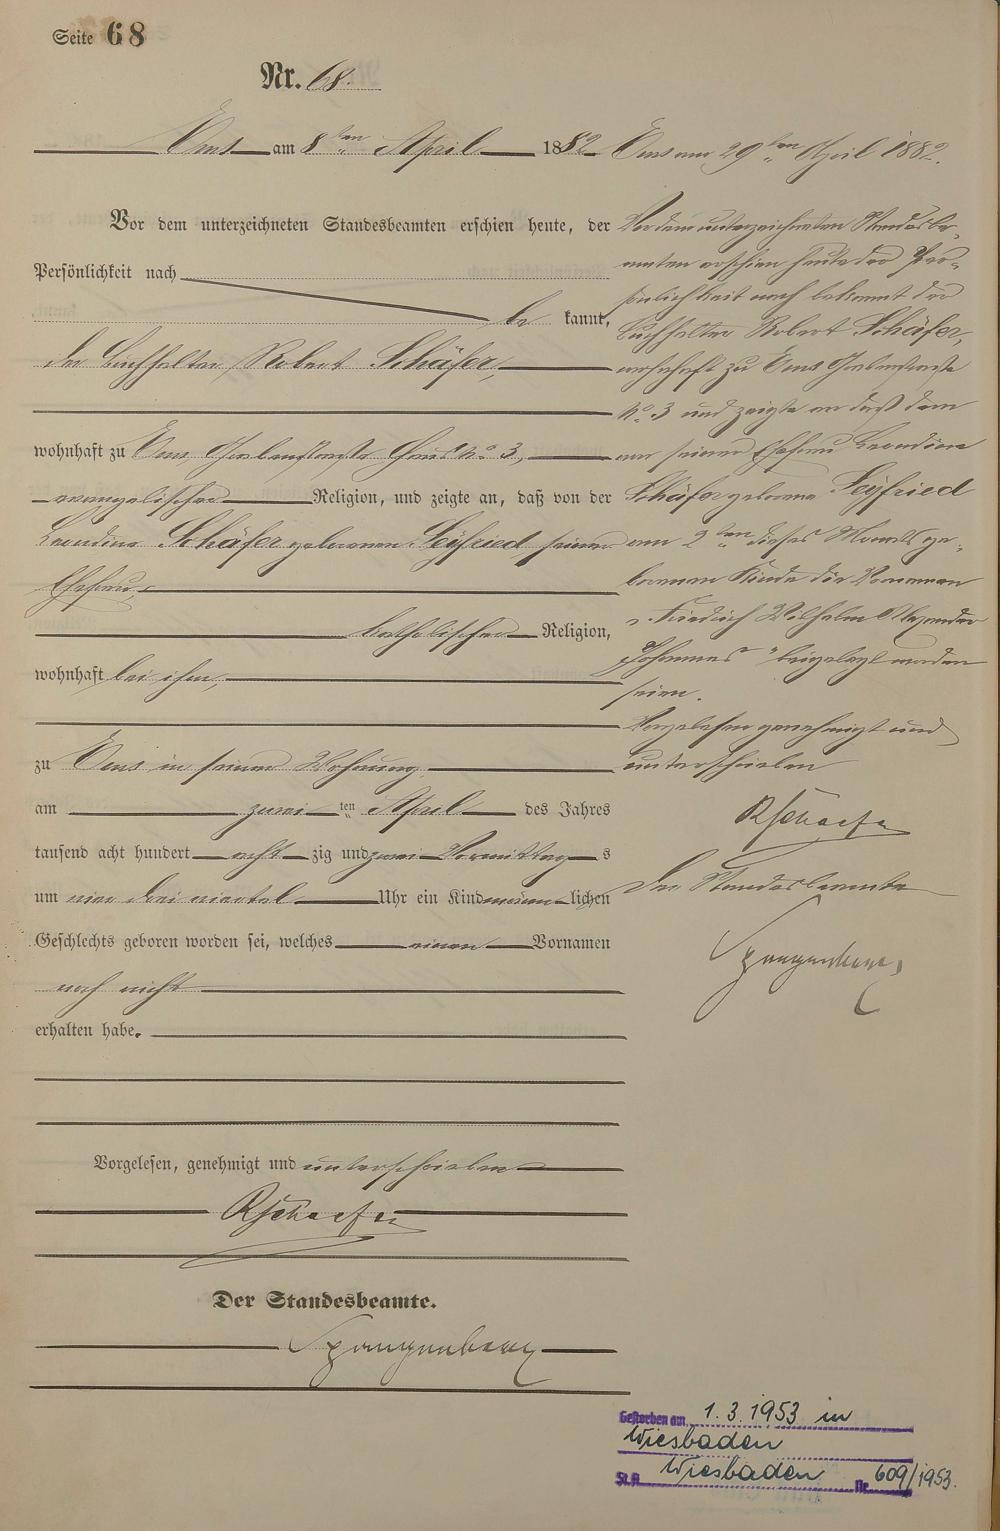 Seite 68
Nr. 68.
Ems am 8ten April 1882
Vor dem unterzeichneten Standesbeamten erschien heute, der
Persönlichkeit nach
be kannt,
der Buchhalter Robert Schäfer,
wohnhaft zu Ems, Haus No 3,
evangelischer Religion, und zeigte an, daß von der
Leondine Schäfer geborenen Seyfried seiner
Ehefrau,
katholischer Religion,
wohnhaft bei ihm,
zu Ems in seiner Wohnung
am zwei ten April des Jahres
tausend acht hundert acht zig und zwei Vormittag s
um vier drei viertel Uhr ein Kind männ lichen
Geschlechts geboren worden sei, welches einen Vornamen
noch nicht
erhalten habe.
Vorgelesen, genehmigt und unterschrieben
R Schaefer
Der Standesbeamte.
Spangenberg
Ems am 29ten April 1882.
Vor dem unterzeichneten Standesbe-
amten erschien heute der Per-
sönlichkeit nach bekannt der
Buchhalter Robert Schäfer,
wohnhaft zu Ems
No 3 und zeigte an daß dem
von seiner Ehefrau Leondine
Schäfer geborene Seyfried
am 2ten dieses Monats ge-
borenen Kinde die Vornamen
"Friedrich Wilhelm Alexander
Johannes" beigelegt worden
seien.
Vorgelesen genehmigt und
unterschrieben
R Schaefer
Der Standesbeamte
Spangenberg
Gestorben am 1.3.1953 in
Wiesbaden
St.A. Wiesbaden Nr. 609/1953.